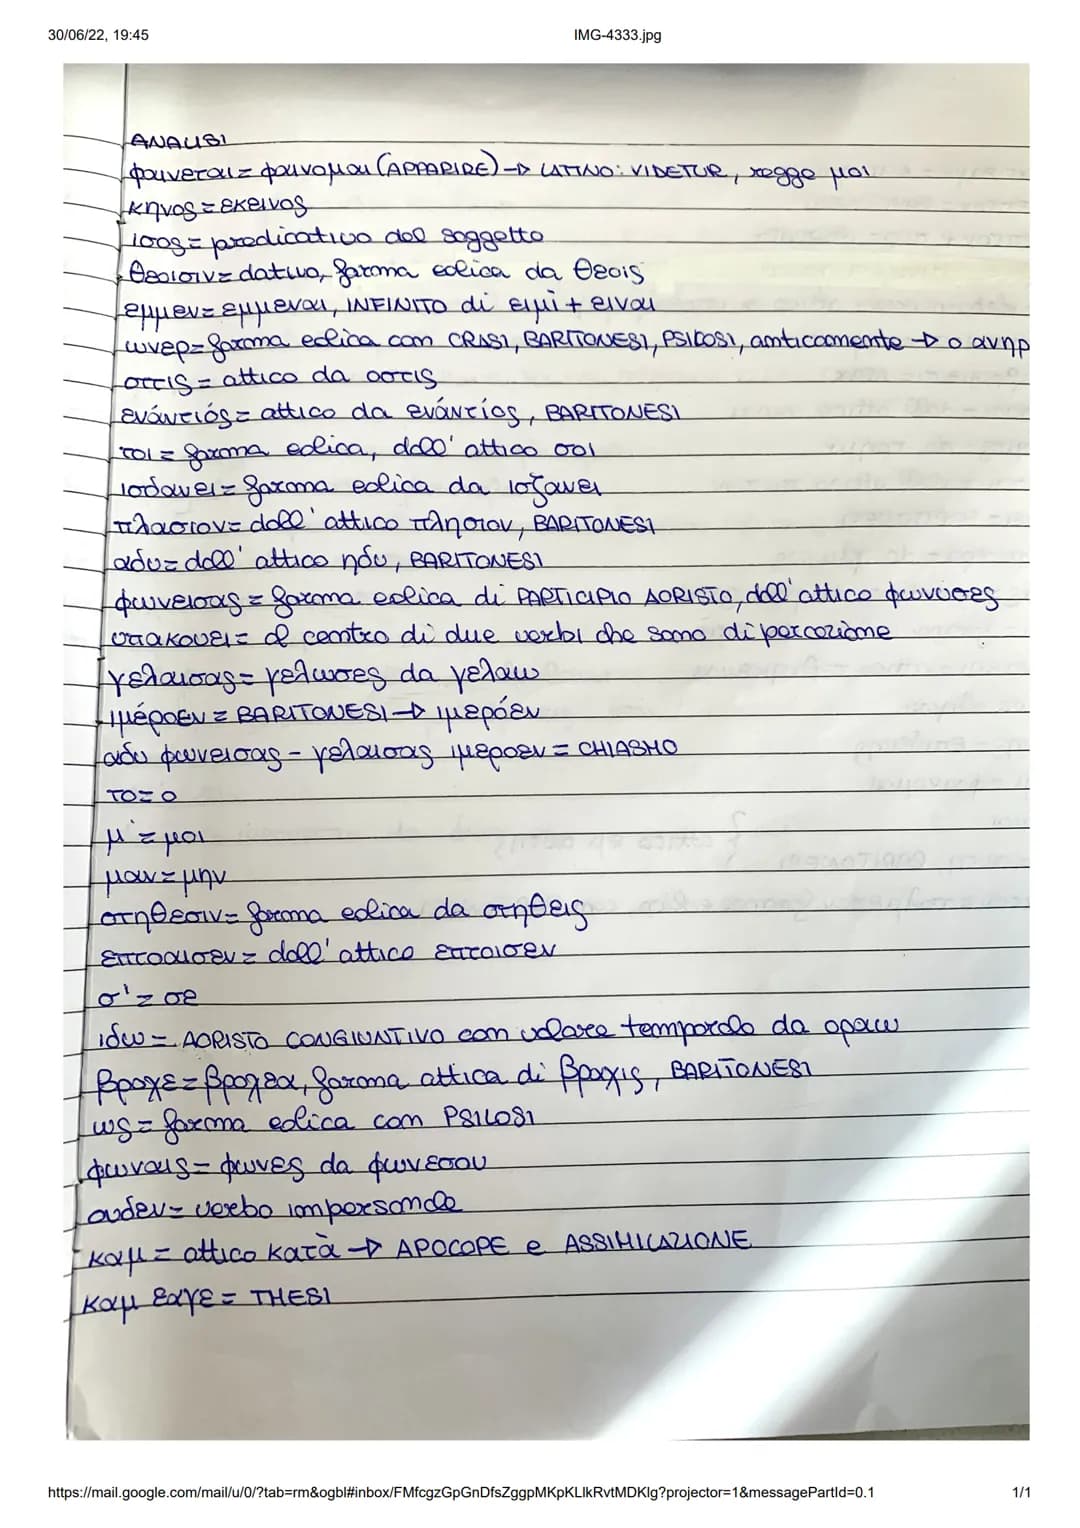 30/06/22, 19:45 IMG-4333.jpg
ANALISI
φαινεται = φαινομαι (APPARIRE) → LATINO: VIDETUR, regge μοι
κηνος = εκεινος
ισος = predicativo del soggetto
θεοισιν = dativo, forma eolica da θεοις
εμμεν = εμμεναι, INFINITO di ειμι + ειναι
ωνερ = forma eolica con CRASI, BARITONESI, PSILOSI, anticamente → ο ανηρ
οττις = attico da οστις
ενάντιός = attico da ενάντίος, BARITONESI
τοι = forma eolica, dall' attico σοι
ισδανει = forma eolica da ιοζανει
πλασιον = dall' attico πλησιον, BARITONESI
αδυ = dall' attico ηδυ, BARITONESI
φωνεισας = forma eolica di PARTICIPIO AORISTO, dall' attico φωνυσες
υπακουει = al centro di due verbi che sono di percezione
γελαισας = γελωσες da γελαω
ιμέροεν = BARITONESI → ιμερόεν
αδυ φωνεισας - γελαισας ιμεροεν = CHIASMO
το = ο
μ' = μοι
μαν = μην
στηθεσιν = forma eolica da στηθεις
επτοαισεν = dall' attico επτοισεν
σ' = σε
ιδω = AORISTO CONGIUNTIVO con valore temporale da οραω
βροχε = βροχεα, forma attica di βραχις, BARITONESI
ως = forma eolica con PSILOSI
φωναις = φωνες da φωνεσαι
ουδεν = verbo impersonale
καμ = attico κατὰ → APOCOPE e ASSIMILAZIONE
καμ εαγε = THESI
https://mail.google.com/mail/u/0/?tab=rm&ogbl#inbox/FMfcgzGpGnDfsZggpMKpKLlkRvtMDKlg?projector=1&messagePartId=0.1 1/1